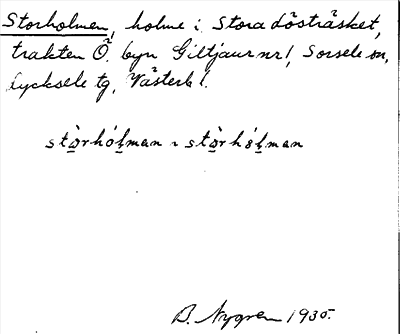 Storholmen, holme i Stora Lösträsket,
trakten Ö. byn Giltjaur nr 1, Sorsele sn,
Lycksele tg, Västerb l.
stòrhól̥man ~ stòrhól̥man
B. Nygren 1935.